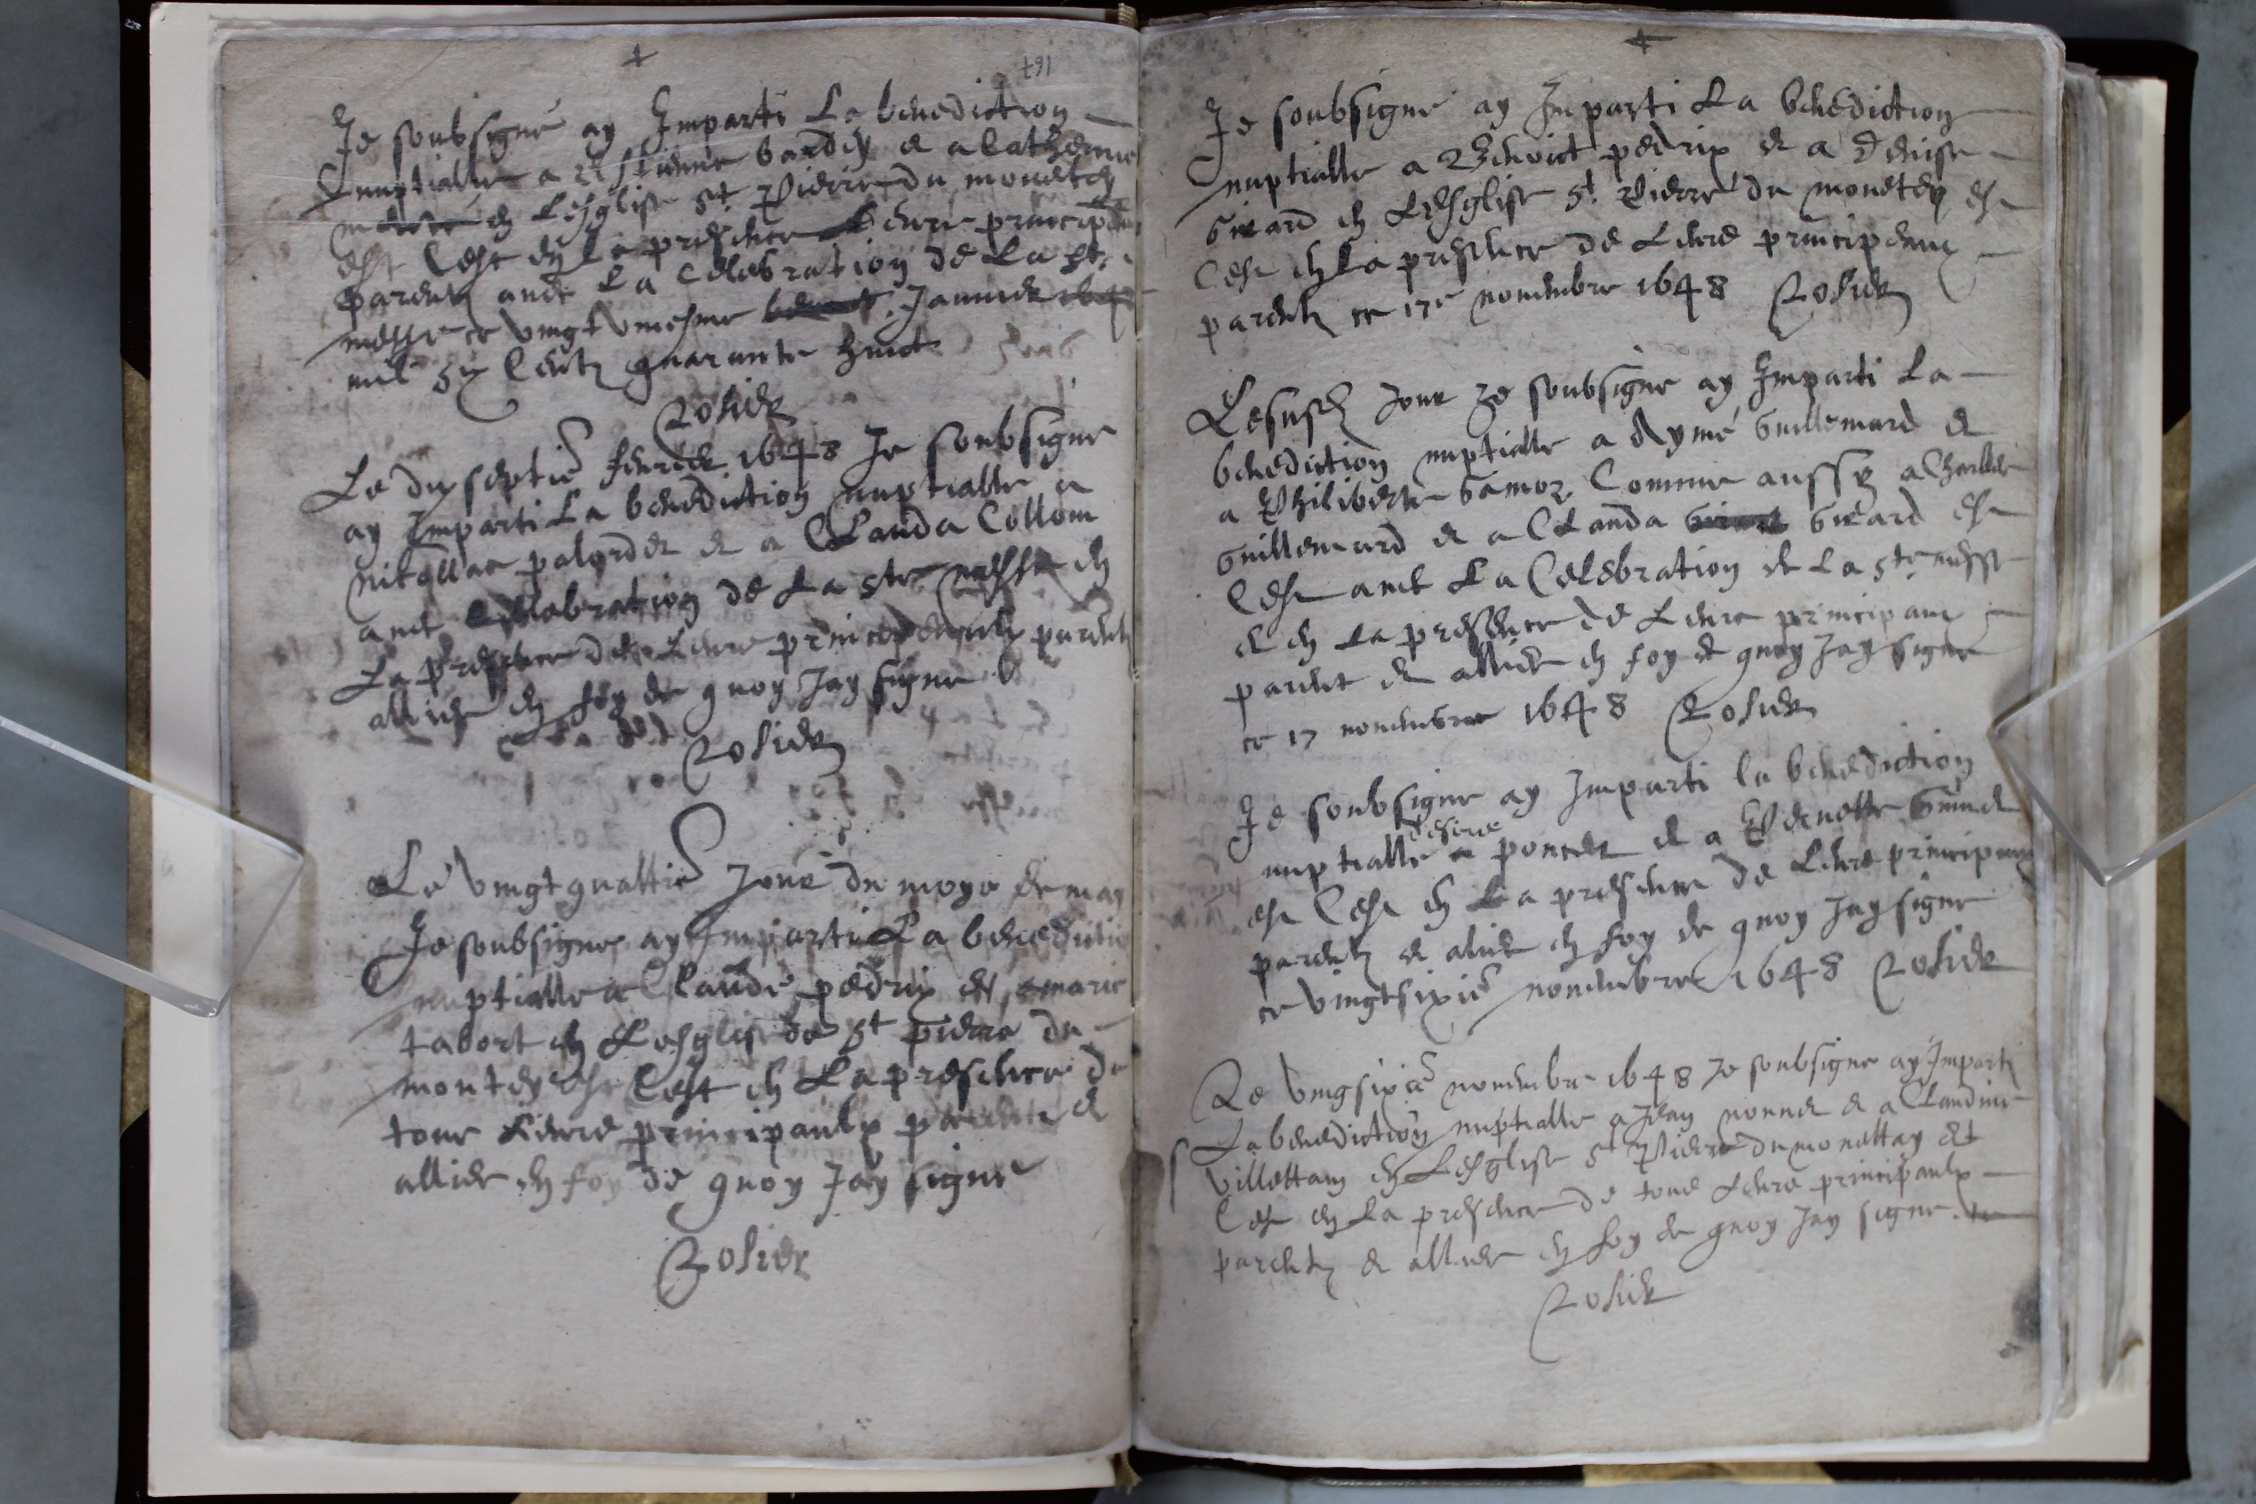 167
Je soubsigne ay Imparti La benediction
nuptialle a Estienne bardin et a Catherine
en Lesglise St. Pierre du monetey
et ce en La presence Leurs principaux
parentz avec La Celebration de La Ste
messe ce vingt uniesme Janvier
mil six Centz quarante huict
Rosier
Le dix septie febvrier 1648 Je soubsigne
ay Imparti La benediction nuptialle a
nicollas et a Clauda Collom
avec Cellebration de La Ste messe en
La presence de Leurs principaulx parentz
alliez en foy de quoy Jay signe
Rosier
Le vingt quattrie Jour du moys de may
Je soubsigne ay Imparti La benediction
nuptialle a Claude pedrix et a marie
tabort en Lesglise de St pierre du
montey et ce en La presence de
tous Leurs principaulx parentz et
alliez en foy de quoy Jay signe
Rosier
Je soubsigne ay Imparti La benediction
nuptialle a Benoict pedrix et a Denise
Girard en Lesglise St. Pierre du monetey et
ce en La presence de Leurs principaux
parentz ce 17e novembre 1648 Rosier
Le susd Jour Je soubsigne ay Imparti La
benediction nuptialle a Aymé Guillemard et
a Philiberte Gamoz Comme aussy a Charles
Guillemard et a Clauda Girard et
ce avec La Celebration de La Ste messe
et en La presence de Leurs principaux
parent et alliez en foy de quoy Jay signe
ce 17 novembre 1648 Rosier
Je soubsigne ay Imparti la benediction
nuptialle a poncet et a Pernette
et ce en La presence de Leurs principaux
parentz et aliez en foy de quoy Jay signe
ce vingtsixie novembre 1648 Rosier
Le vingsixie novembre 1648 Je soubsigne ay Imparti
La benediction nuptialle a Jean nonnet et a Claudine
villettam en Lesglise St Pierre du monettay et
ce en La presence de tous Leurs principaulx
parentz et alliez en foy de quoy Jay signe
Rosier